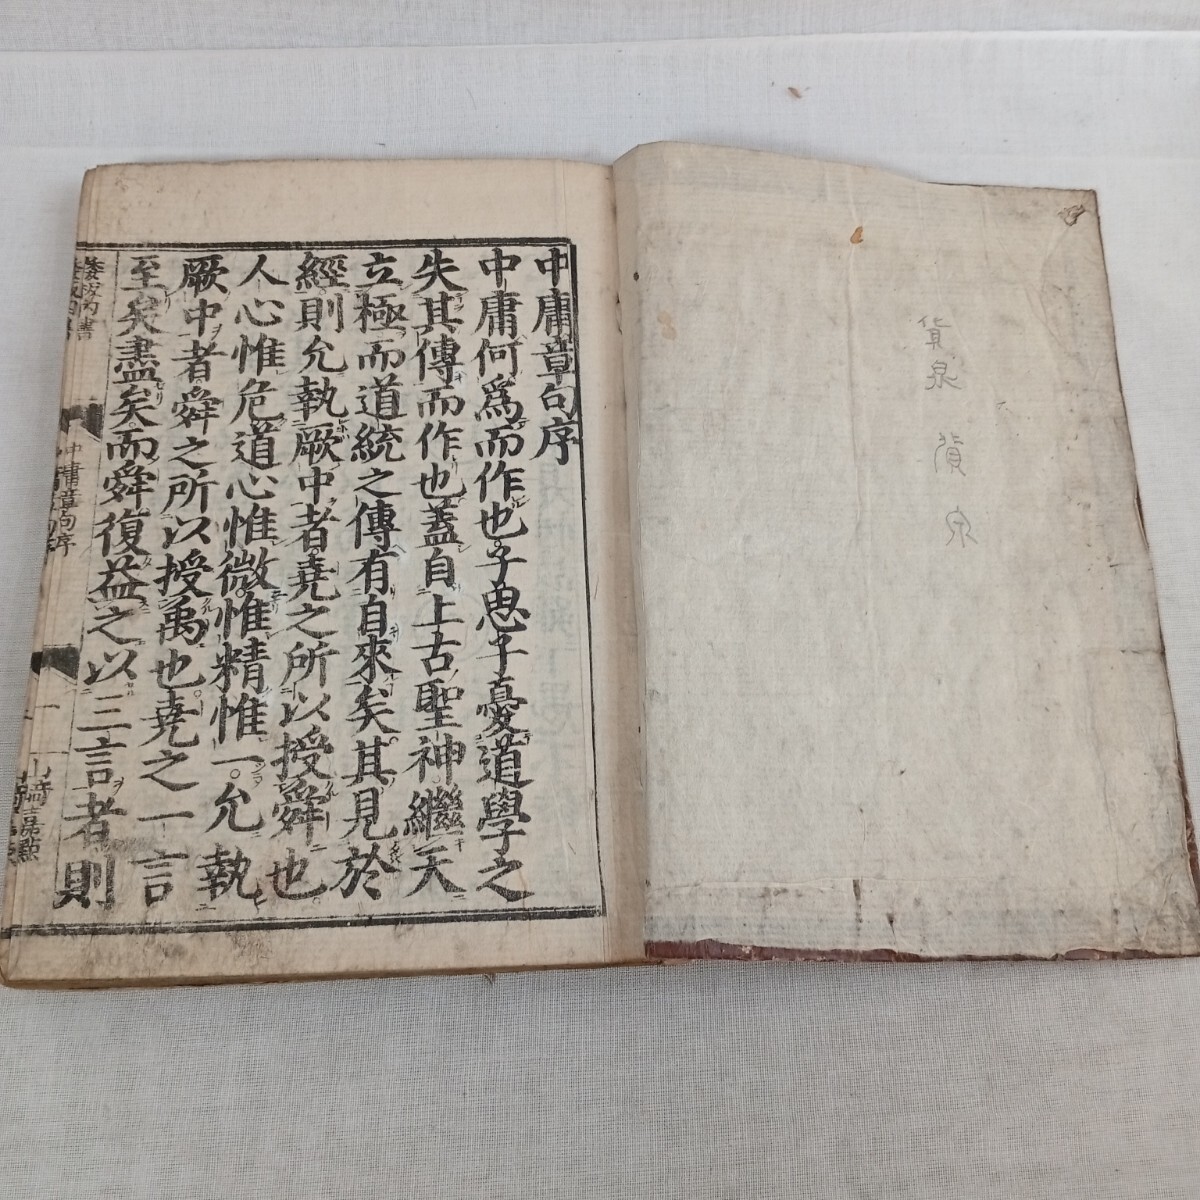 貨泉 貨泉
中庸章句序
中庸何爲而作也子思子憂道學之
失其傳而作也蓋自上古聖神繼天
立極而道統之傳有自來矣其見於
經則允執厥中者堯之所以授舜也
人心惟危道心惟微惟精惟一允執
厥中者舜之所以授禹也堯之一言
至矣盡矣而舜復益之以三言者則
中庸章句序
一
山崎嘉點